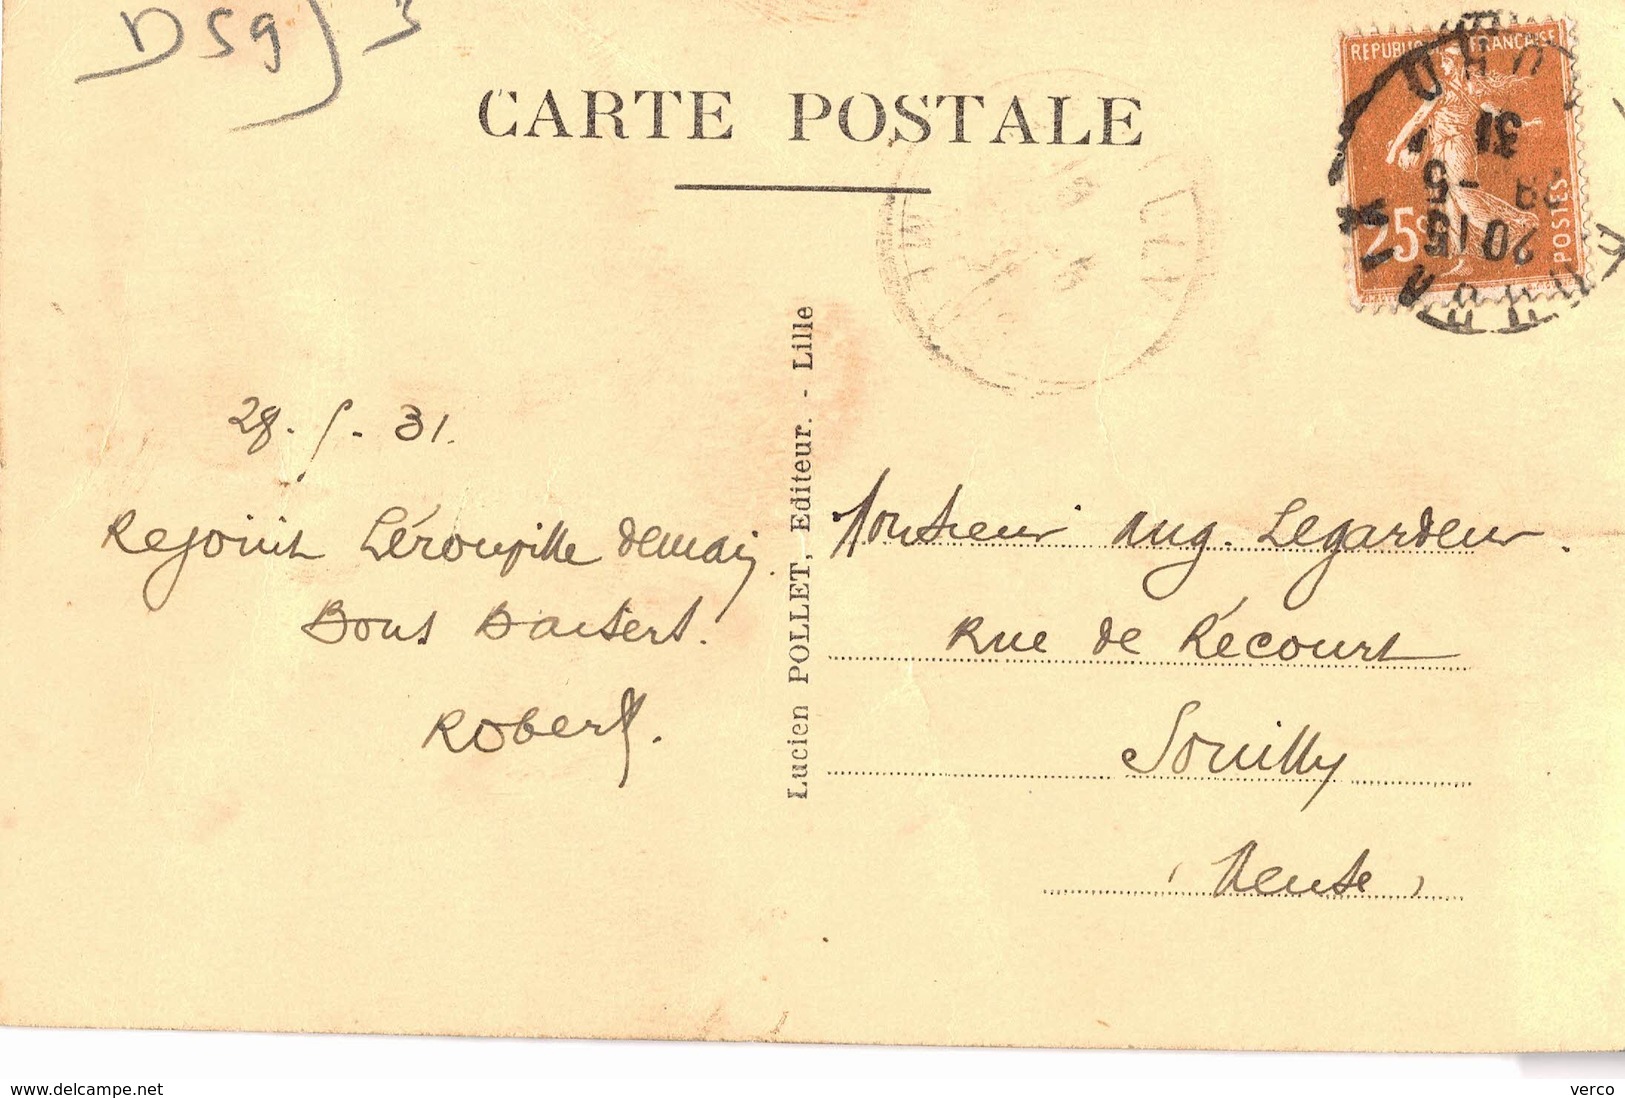 DSg) 3
CARTE POSTALE
REPUBLIQUE FRANCAISE
25c
POSTES
2015
28 -5
31
28. 5. 31.
Rejoint Lérouville demain.
Bons Baisers.
Robert.
Lucien POLLET, Editeur. - Lille
Monsieur Aug. Legardeur.
Rue de Récourt
Souilly
(Meuse)
www.delcampe.net
verco